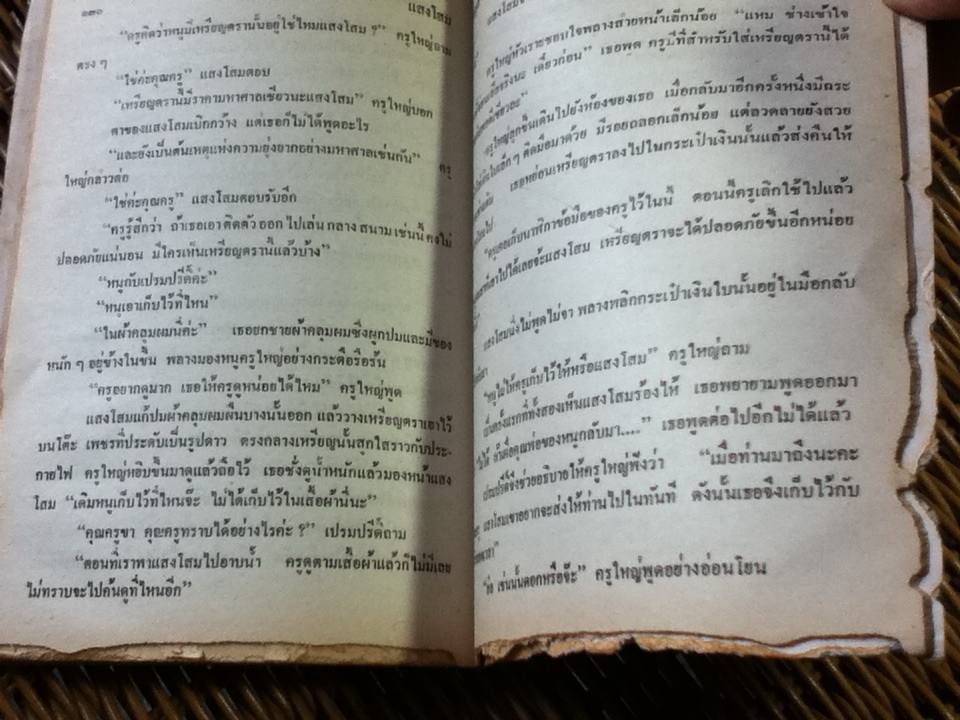 ๑๓๐
แสงโสม
“ครูคิดว่าหนูมีเหรียญตรานั้นอยู่ใช่ไหมแสงโสม ?” ครูใหญ่ถาม
ตรง ๆ
“ใช่ค่ะคุณครู” แสงโสมตอบ
“เหรียญตรานี้มีราคามหาศาลเชียวนะแสงโสม” ครูใหญ่บอก
ตาของแสงโสมเบิกกว้าง แต่เธอก็ไม่ได้พูดอะไร
“และยังเป็นต้นเหตุแห่งความยุ่งยากอย่างมหาศาลเช่นกัน” ครู
ใหญ่กล่าวต่อ
“ใช่ค่ะคุณครู” แสงโสมตอบรับอีก
“ครูรู้สึกว่า ถ้าเธอเอาติดตัวออกไปเล่นกลางสนามเช่นนี้ คงไม่
ปลอดภัยแน่นอน มีใครเห็นเหรียญตรานี้แล้วบ้าง”
“หนูกับเปรมปรีดิ์ค่ะ”
“หนูเอาเก็บไว้ที่ไหน”
“ในผ้าคลุมผมนี่ค่ะ” เธอยกชายผ้าคลุมผมซึ่งผูกปมและมีของ
หนัก ๆ อยู่ข้างในขึ้น พลางมองหนูครูใหญ่อย่างกระตือรือร้น
“ครูอยากดูมาก เธอให้ครูดูหน่อยได้ไหม” ครูใหญ่พูด
แสงโสมแก้ปมผ้าคลุมผมผืนบางนั้นออก แล้ววางเหรียญตราเอาไว้
บนโต๊ะ เพชรที่ประดับเป็นรูปดาว ตรงกลางเหรียญนั้นสุกใสราวกับประ-
กายไฟ ครูใหญ่หยิบขึ้นมาดูแล้วถือไว้ เธอชั่งดูน้ำหนักแล้วมองหน้าแสง
โสม “เดิมหนูเก็บไว้ที่ไหนจ๊ะ ไม่ได้เก็บไว้ในเสื้อผ้านี่นะ”
“คุณครูขา คุณครูทราบได้อย่างไรค่ะ ?” เปรมปรีดิ์ถาม
“ตอนที่เราพาแสงโสมไปอาบน้ำ ครูดูตามเสื้อผ้าแล้วก็ไม่มีเลย
ไม่ทราบจะไปค้นดูที่ไหนอีก”
ครูใหญ่หัวเราะชอบใจพลางส่ายหน้าเล็กน้อย “แหม ช่างเข้าใจ
เดี๋ยวก่อน” เธอพูด ครูมีที่สำหรับใส่เหรียญตรานี้ได้
ครูใหญ่ลุกขึ้นเดินไปยังห้องของเธอ เมื่อกลับมาอีกครั้งหนึ่งมีกระ
เล็ก ๆ ติดมือมาด้วย มีรอยถลอกเล็กน้อย แต่ลวดลายยังสวย
เธอหย่อนเหรียญตราลงไปในกระเป๋าเงินนั้นแล้วส่งคืนให้
“ครูเคยเก็บนาฬิกาข้อมือของครูไว้ในนี้ ตอนนี้ครูเลิกใช้ไปแล้ว
เอาไปได้เลยจ้ะแสงโสม เหรียญตราจะได้ปลอดภัยขึ้นอีกหน่อย
แสงโสมนั่งไม่พูดไม่จา พลางพลิกกระเป๋าเงินใบนั้นอยู่ในมือกลับ
“หนูไม่ให้ครูเก็บไว้ให้หรือแสงโสม” ครูใหญ่ถาม
เป็นครั้งแรกที่ทั้งสองเห็นแสงโสมร้องไห้ เธอพยายามพูดออกมา
“ไม่ได้ ถ้าเผื่อคุณพ่อของหนูกลับมา....” เธอพูดต่อไปอีกไม่ได้แล้ว
เปรมปรีดิ์จึงช่วยอธิบายให้ครูใหญ่ฟังว่า “เมื่อท่านมาถึงนะคะ
แสงโสมเขาอยากจะส่งให้ท่านไปในทันที ดังนั้นเธอจึงเก็บไว้กับ
“อ๋อ เช่นนั้นดอกหรือจ๊ะ” ครูใหญ่พูดอย่างอ่อนโยน